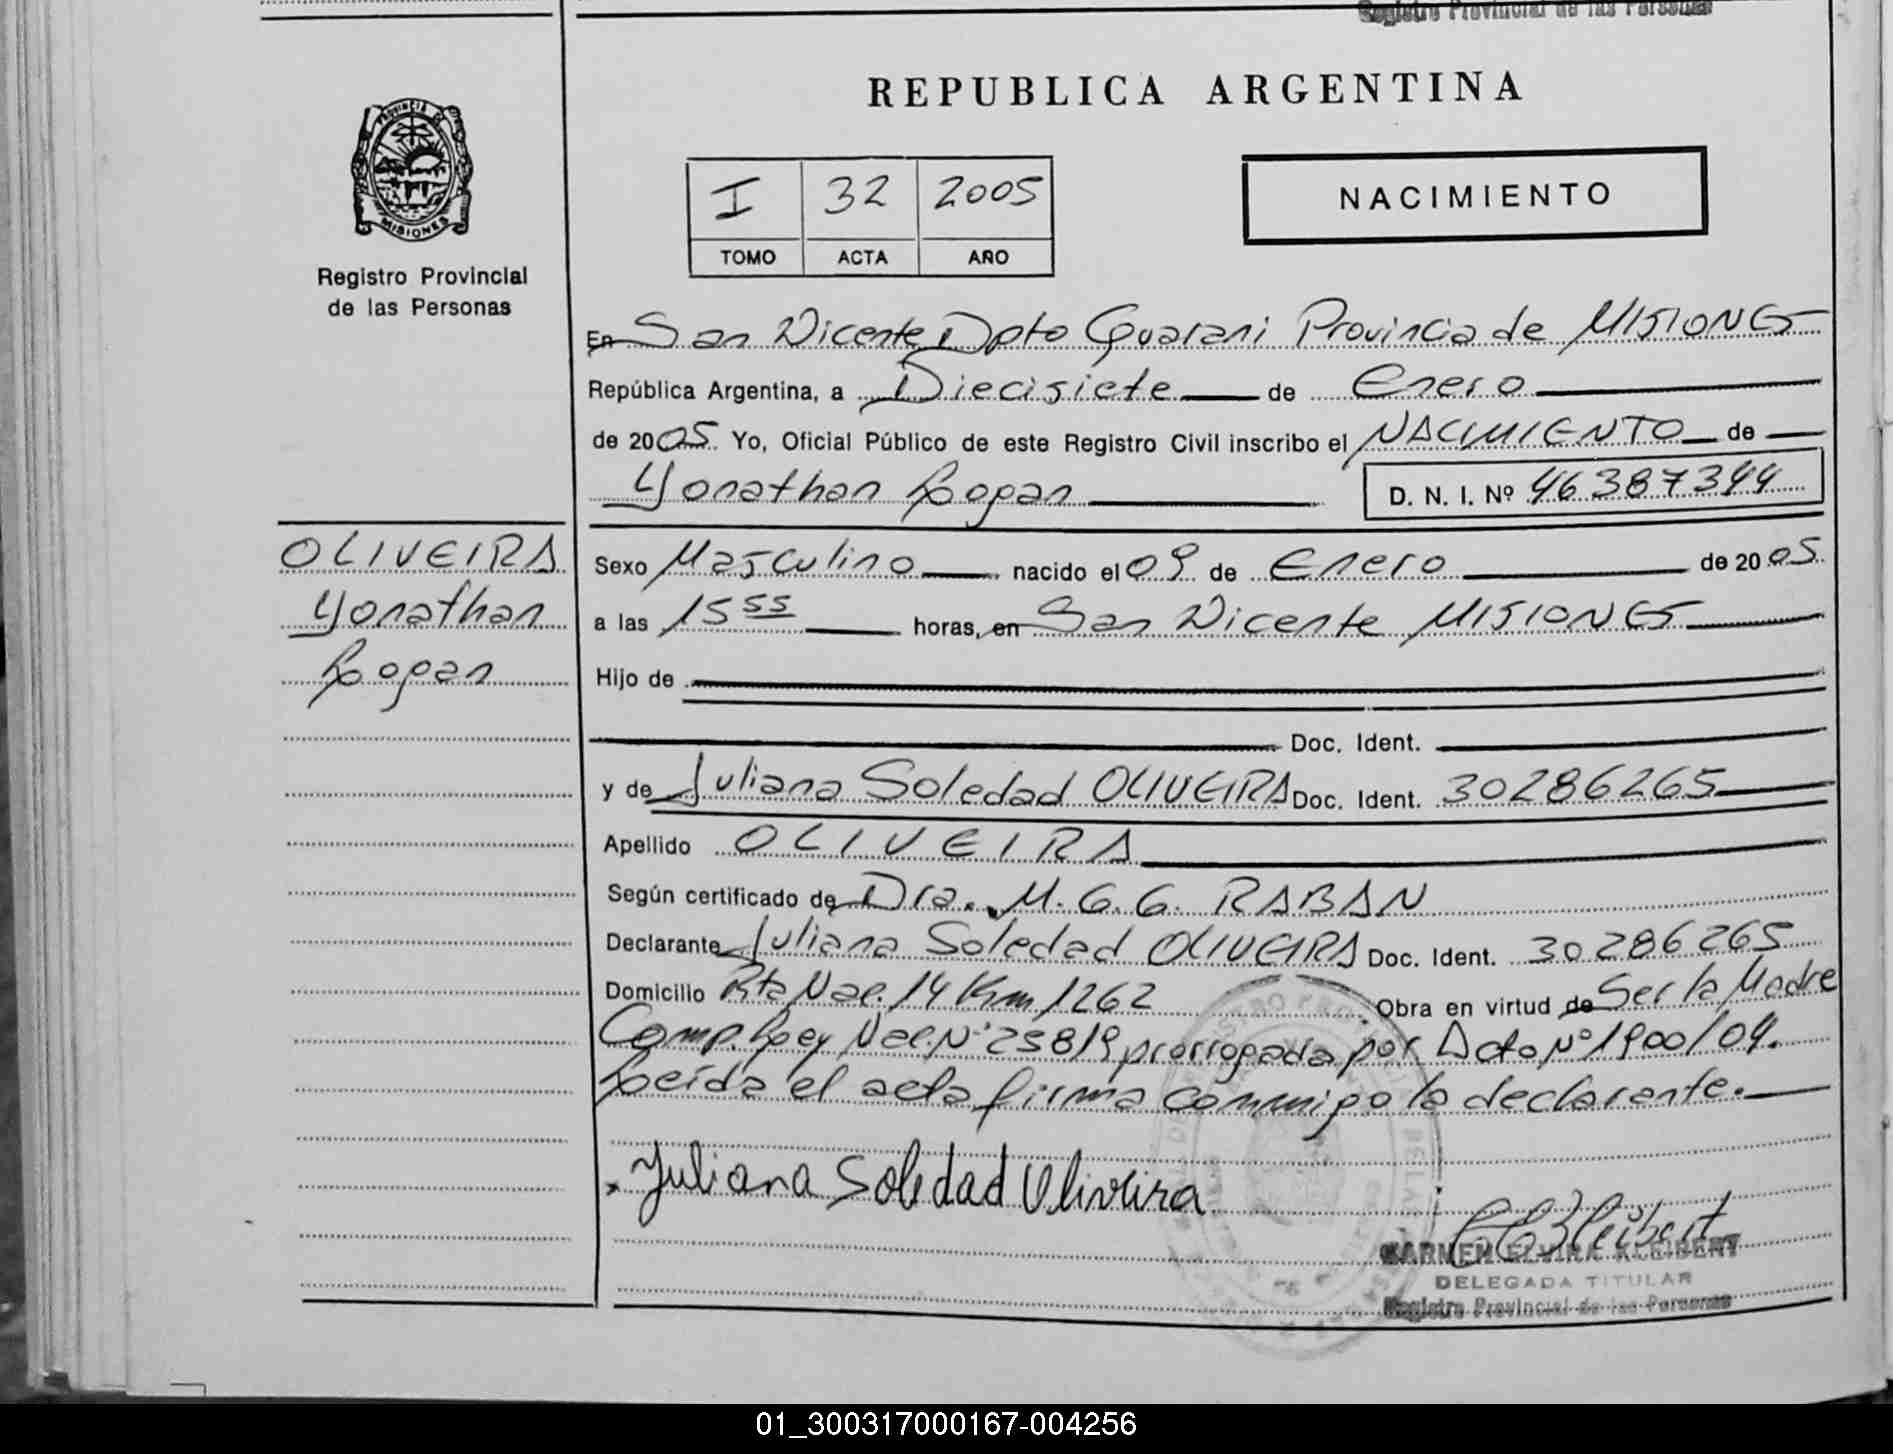 Registro Provincial de las Personas
PROVINCIA DE
MISIONES
Registro Provincial
de las Personas
REPUBLICA ARGENTINA
I 32 2005
TOMO ACTA AÑO
NACIMIENTO
En San Vicente Dpto Guarani Provincia de MISIONES
República Argentina, a Diecisiete de Enero
de 2005 Yo, Oficial Público de este Registro Civil inscribo el NACIMIENTO de
Yonathan Logan
D. N. I. Nº 46387344
OLIVEIRA
Yonathan
Logan
Sexo Masculino nacido el 09 de Enero de 2005
a las 15 55 horas, en San Vicente MISIONES
Hijo de
Doc. Ident.
y de Juliana Soledad OLIVEIRA Doc. Ident. 30286265
Apellido OLIVEIRA
Según certificado de Dra. M. G. G. RABAN
Declarante Juliana Soledad OLIVEIRA Doc. Ident. 30286265
Domicilio Rta Nac. 14 Km 1262 Obra en virtud de Ser la Madre
Comp. Ley Nac. Nº 25819 prorrogada por Dcto Nº 1900/04.
Leída el acta firma conmigo la declarante.
Juliana Soledad Oliveira
CARMEN ELVIRA KLEIBERT
DELEGADA TITULAR
Registro Provincial de las Personas
01_300317000167-004256